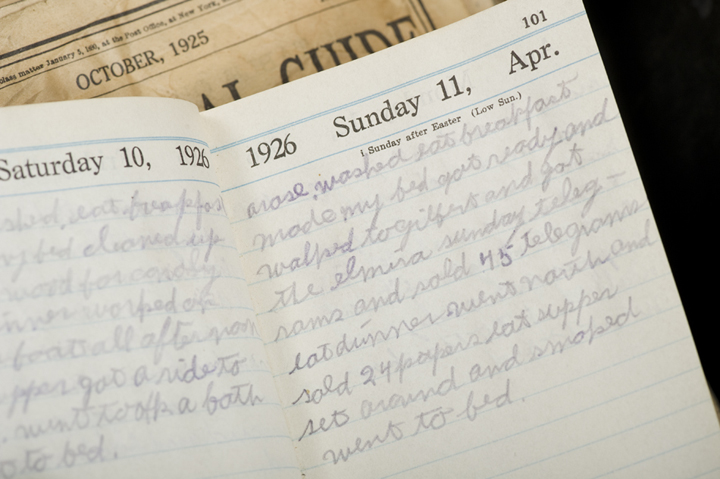 class matter January 5, at the Post Office, at New York,
OCTOBER, 1925
AL GUIDE
Saturday 10, 1926
shed, eat breakfast
my bed cleaned up
wood for candy
inner worked on
boat all afternoon
upper got a ride to
went took a bath
to bed.
101
1926 Sunday 11, Apr.
1. Sunday after Easter (Low Sun.)
arose, washed eat breakfast
made my bed got ready and
walked to gilberts and got
the elmira sunday teleg-
rams and sold 45 telegrams
eat dinner went north and
sold 24 papers eat supper
set around and smoked
went to bed.